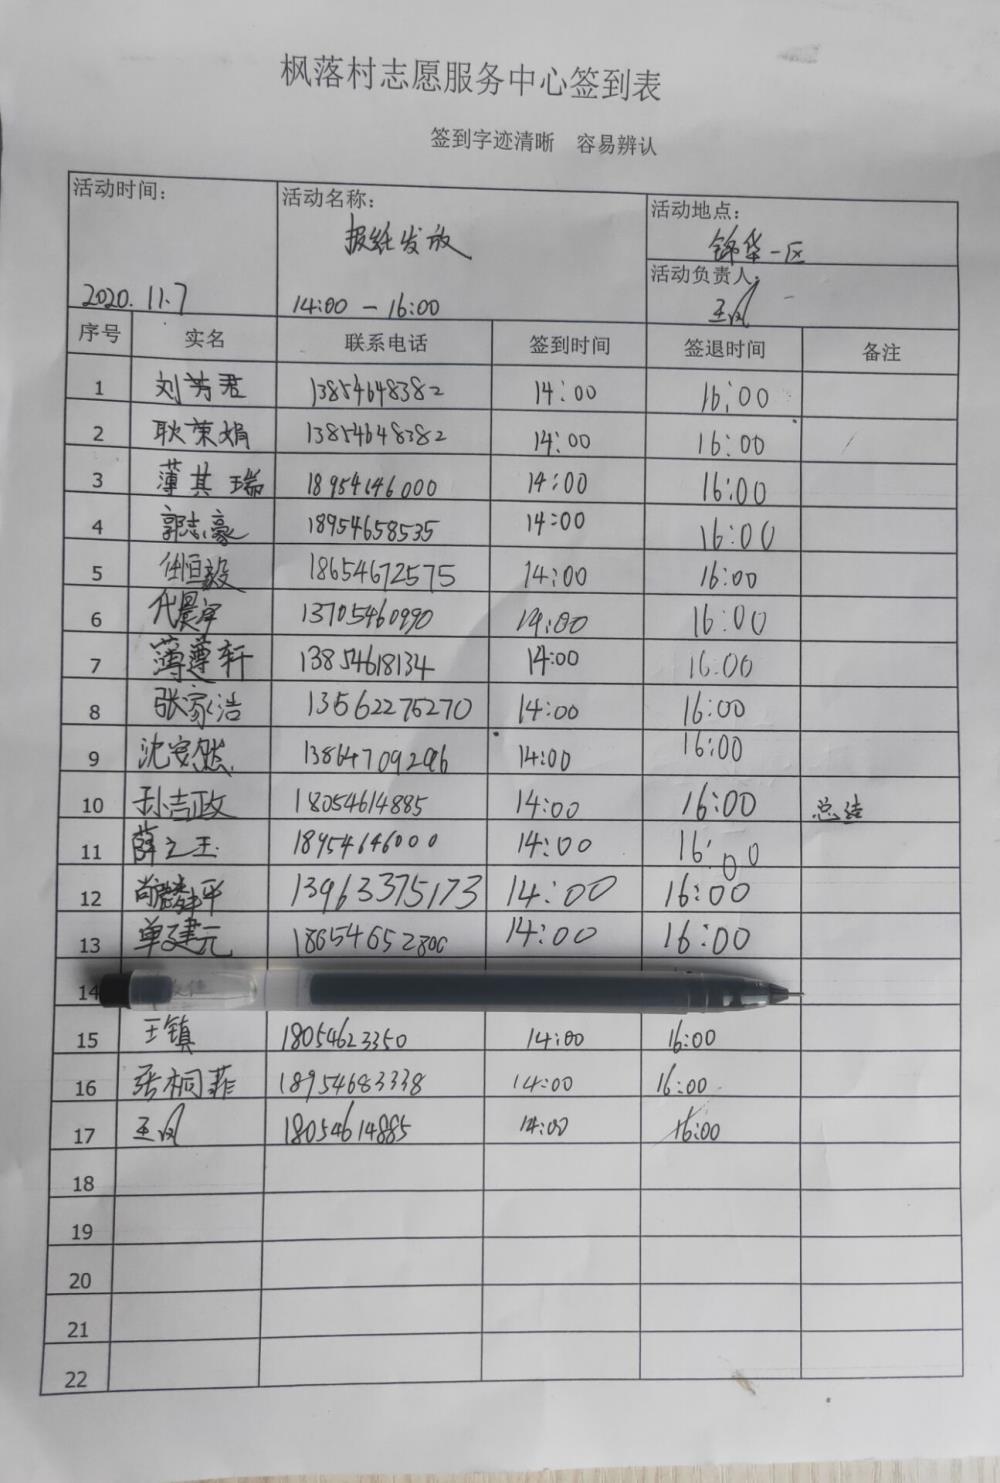 枫落村志愿服务中心签到表
签到字迹清晰 容易辨认
活动时间: 2020.11.7
活动名称: 报纸发放 14:00 - 16:00
活动地点: 锦华一区
活动负责人: 王凤
序号 实名 联系电话 签到时间 签退时间 备注
1 刘芳君 13854648382 14:00 16:00
2 耿荣娟 13854648382 14:00 16:00
3 薄其瑞 18954646000 14:00 16:00
4 郭志豪 18954658535 14:00 16:00
5 任恒毅 18654672575 14:00 16:00
6 代晨宇 13705460990 14:00 16:00
7 薄尊轩 13854618134 14:00 16:00
8 张家浩 13562275270 14:00 16:00
9 沈安然 13864709296 14:00 16:00
10 孙吉政 18054614885 14:00 16:00 总结
11 薛之玉 18954646000 14:00 16:00
12 13963375173 14:00 16:00
13 单建元 18654652800 14:00 16:00
14
15 王镇 18054623350 14:00 16:00
16 张桐菲 18954683338 14:00 16:00
17 王凤 18054614885 14:00 16:00
18
19
20
21
22